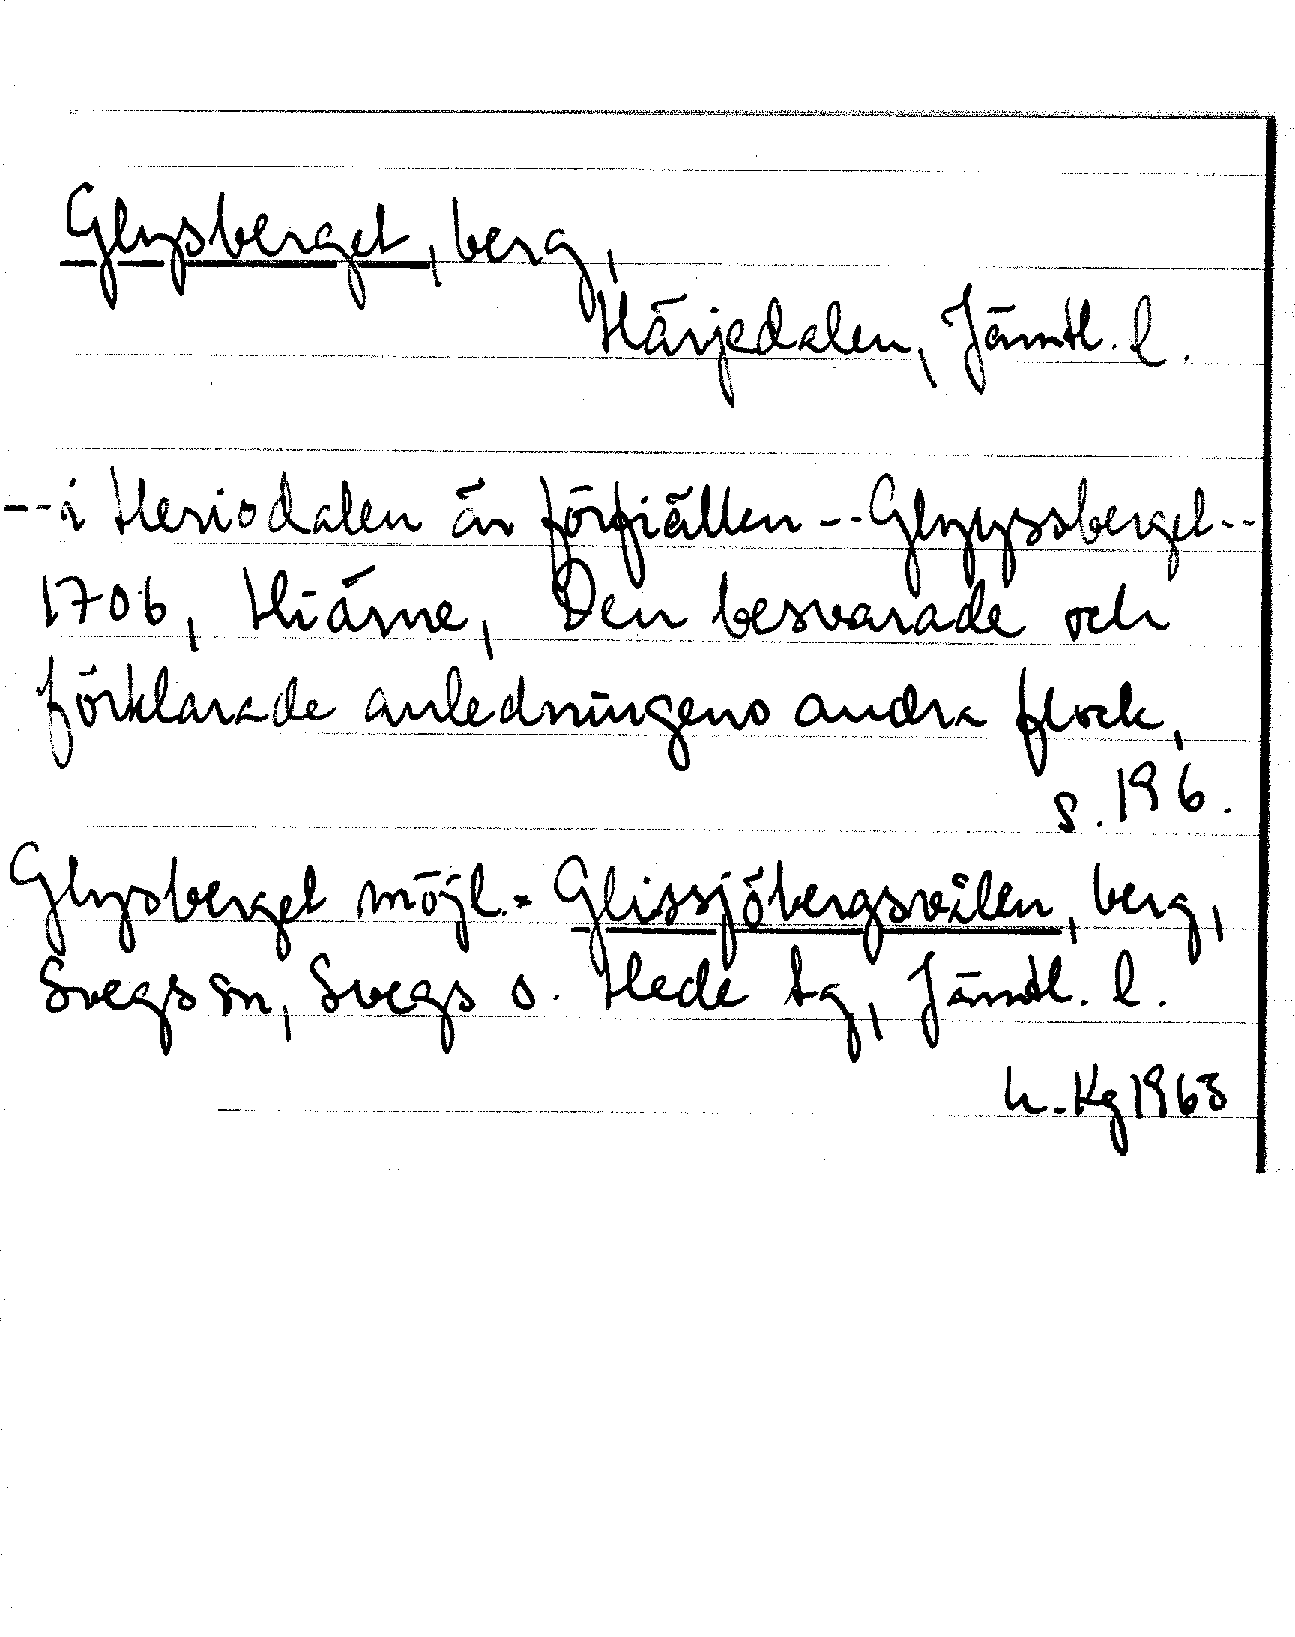 Glysberget, berg,
Härjedalen, Jämtl. l.
-- i Heriodalen är förfiällen -- Glyyssberget --
1706, Hiärne, Den besvarade och
förklarade anledningens andra flock,
s. 196.
Glysberget möjl. = Glissjöbergsvålen, berg,
Svegs sn, Svegs o. Hede tg, Jämtl. l.
L. Kg 1968